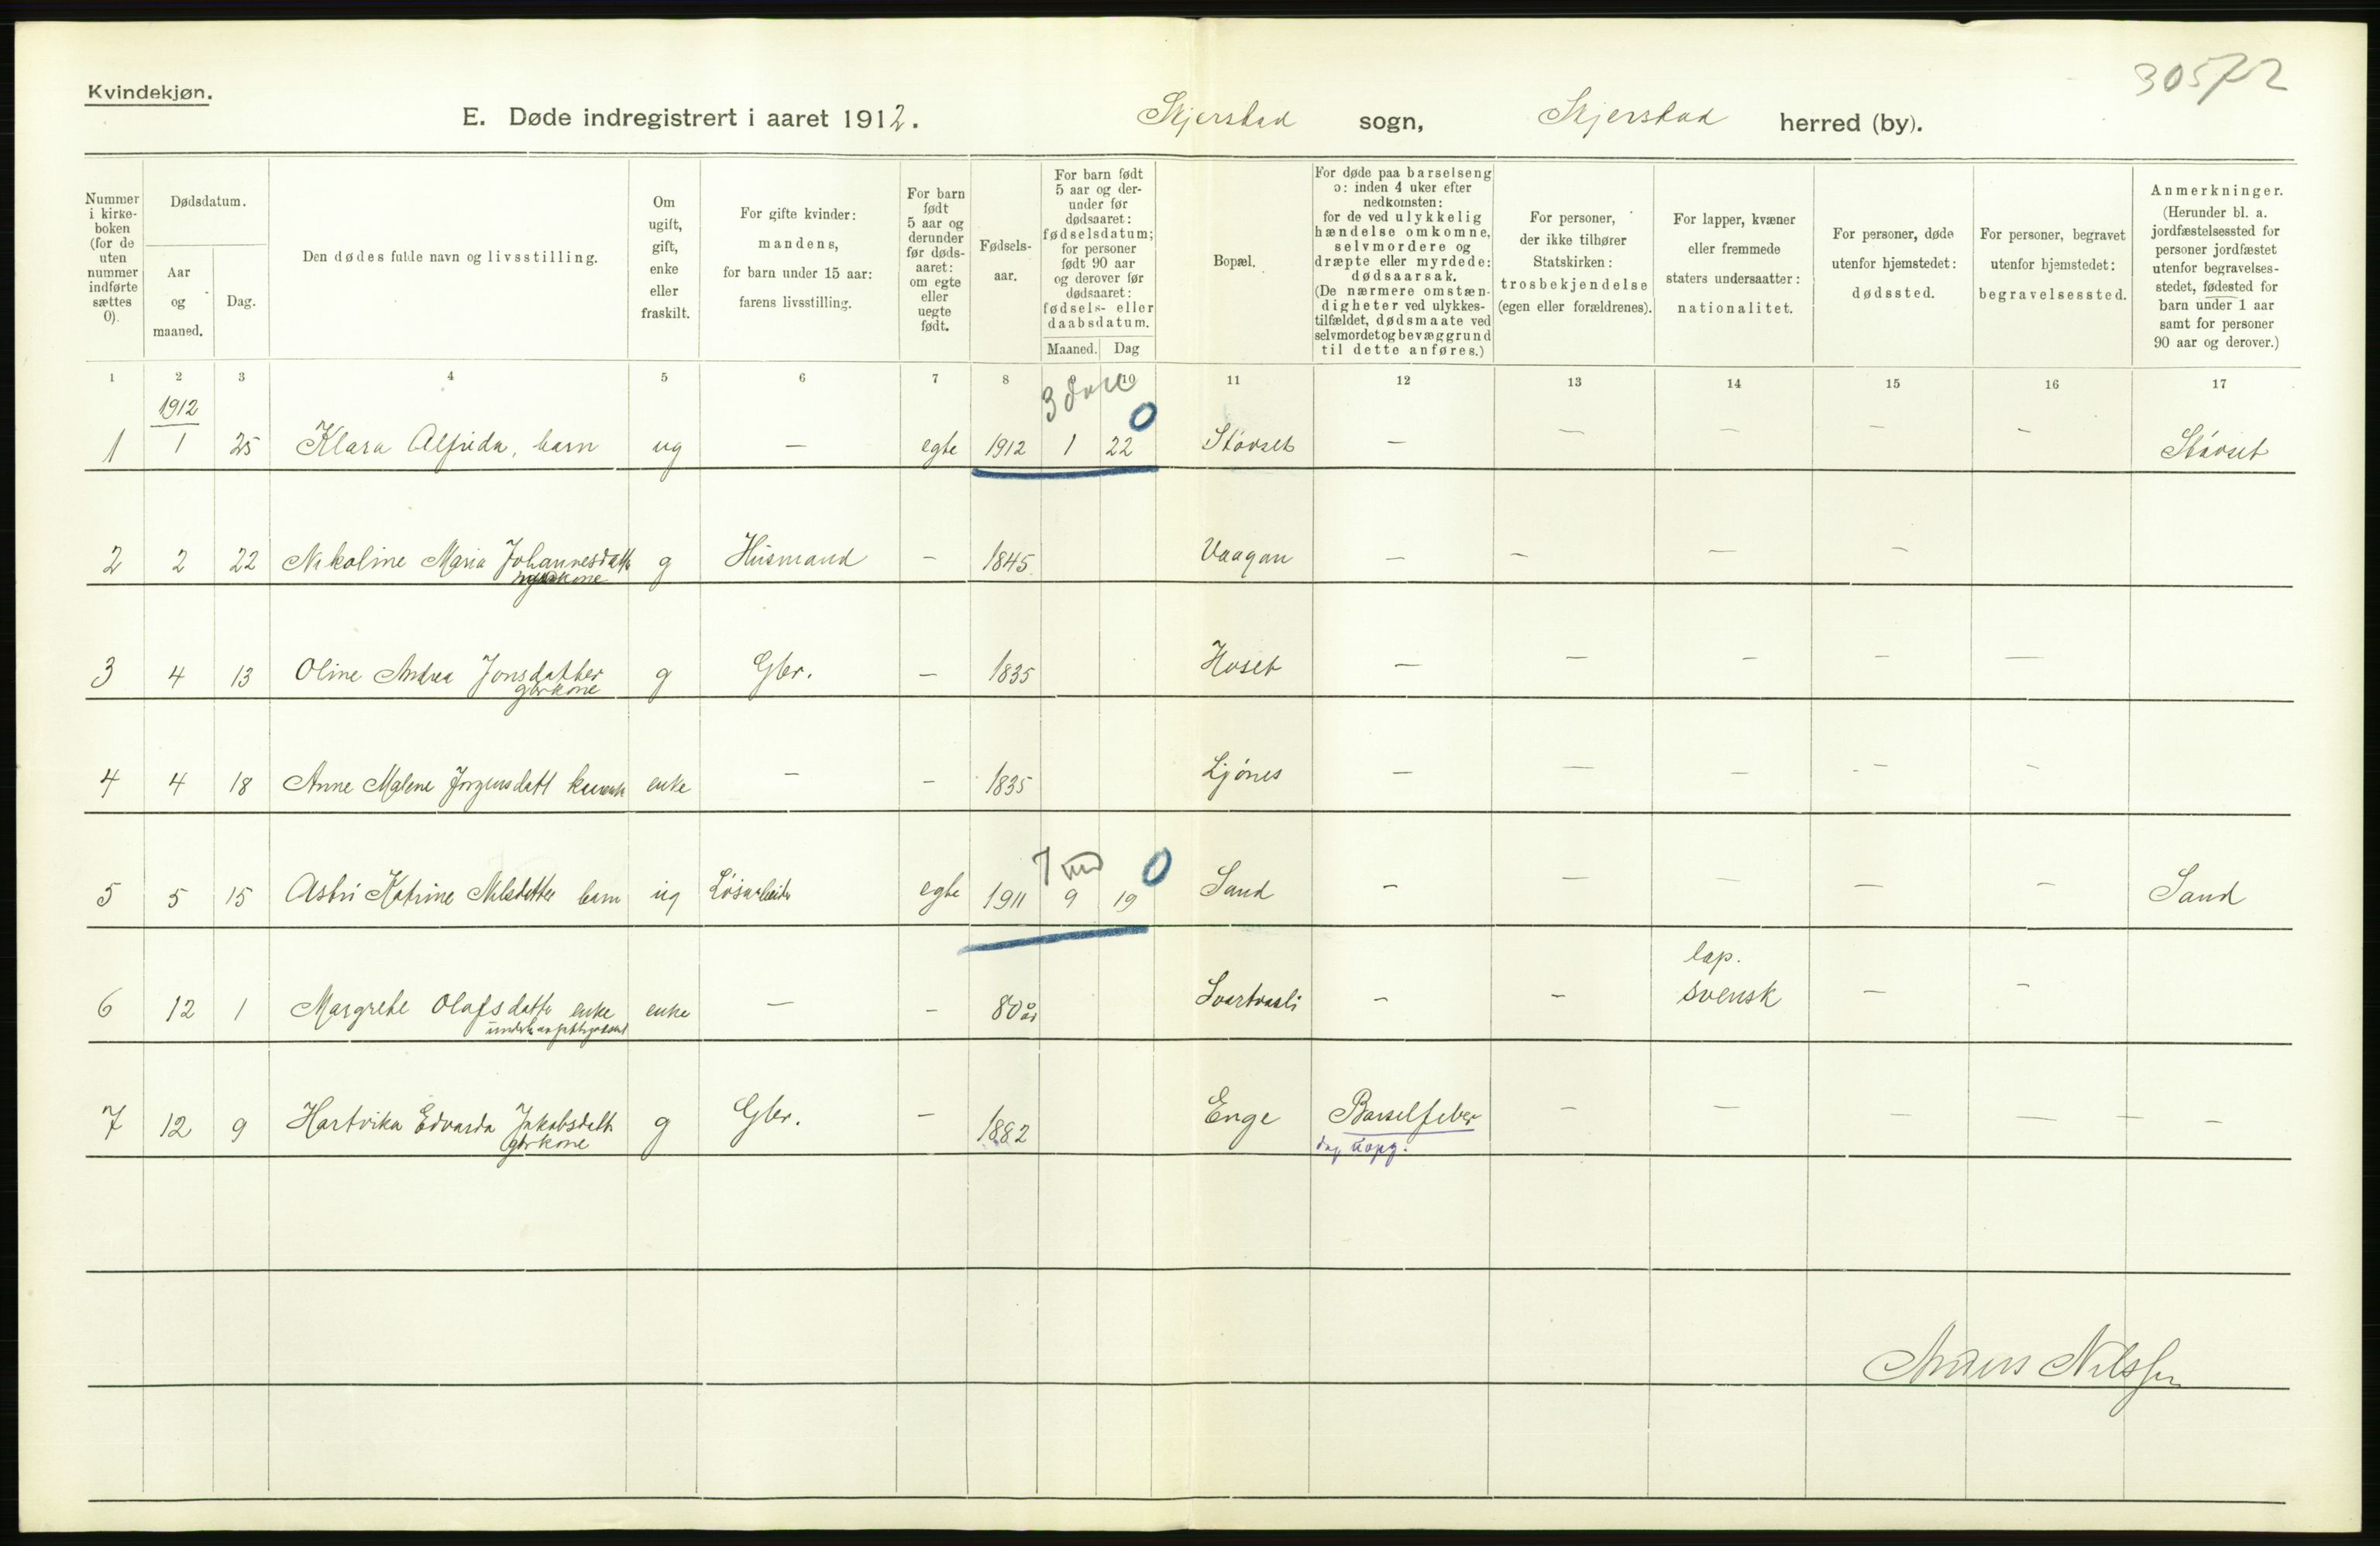 Kvindekjøn.
30572
E. Døde indregistrert i aaret 1912. Skjerstad sogn, Skjerstad herred (by).
Nummer i kirke-boken (for de uten nummer indførte sættes 0).
Dødsdatum.
Aar og maaned.
Dag.
Den dødes fulde navn og livsstilling.
Om ugift, gift, enke eller fraskilt.
For gifte kvinder: mandens, for barn under 15 aar: farens livsstilling.
For barn født 5 aar og derunder før døds-aaret: om egte eller uegte født.
Fødsels-aar.
For barn født 5 aar og der-under før dødsaaret: fødselsdatum; for personer født 90 aar og derover før dødsaaret: fødsels- eller daabsdatum.
Maaned. Dag
Bopæl.
For døde paa barselseng ɔ: inden 4 uker efter nedkomsten: for de ved ulykkelig hændelse omkomne, selvmordere og dræpte eller myrdede: dødsaarsak. (De nærmere omstæn-digheter ved ulykkes-tilfældet, dødsmaate ved selvmordet og bevæggrund til dette anføres.)
For personer, der ikke tilhører Statskirken: trosbekjendelse (egen eller forældrenes).
For lapper, kvæner eller fremmede staters undersaatter: nationalitet.
For personer, døde utenfor hjemstedet: dødssted.
For personer, begravet utenfor hjemstedet: begravelsessted.
Anmerkninger. (Herunder bl. a. jordfæstelsessted for personer jordfæstet utenfor begravelses-stedet, fødested for barn under 1 aar samt for personer 90 aar og derover.)
1 2 3 4 5 6 7 8 10 11 12 13 14 15 16 17
1912
3
0
1 1 25 Klara Alfrida, barn ug — egte 1912 1 22 Støvset — — — — — Støvset
2 2 22 Nikoline Maria Johannesdatter g Husmand — 1845 Vaagan — — — —
3 4 13 Oline Andrea Jonsdatter g Gbr. — 1835 Hoset — — — — —
gbrkone
4 4 18 Anne Malene Jørgensdatt enke — — 1835 Ljønes — — — — —
7 md 0
5 5 15 Astri Katrine Nilsdatter barn ug Løsarbeider egte 1911 9 19 Sand — — — — — Sand
lap.
6 12 1 Margrete Olafsdatter enke enke — — 80 år Svartvasli — — svensk — —
7 12 9 Hartvika Edvarda Jakobsdatter g Gbr. — 1882 Enge Barselfeber — — — — — —
gbrkone
uopg.
Anders Nilssen